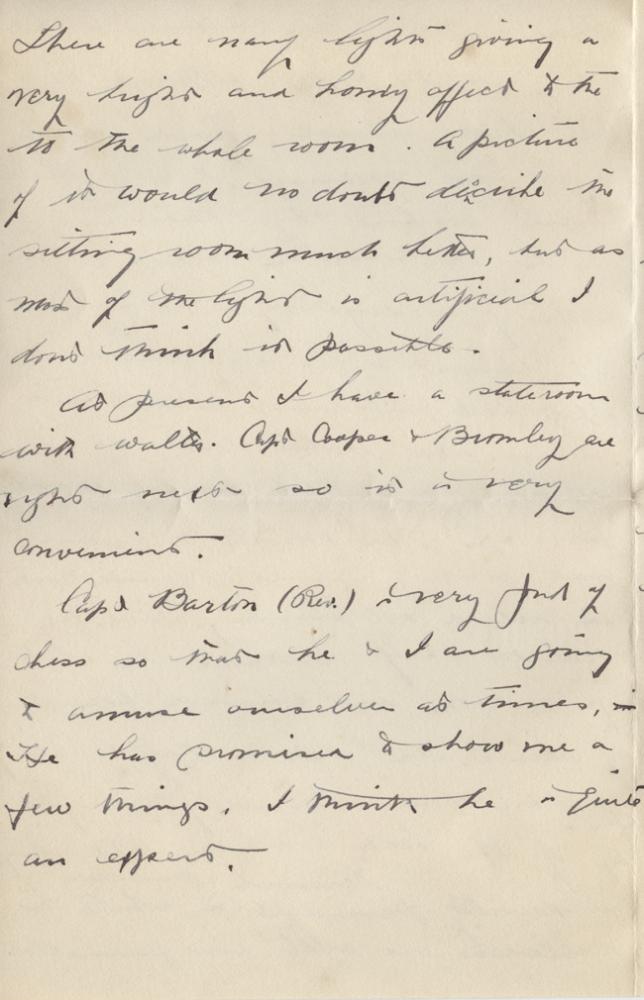 There are many lights giving a
very bright and homy effect to the
to the whole room. A picture
of it would no doubt describe the
sitting room much better, but as
most of the light is artificial I
dont think it possible.
At present I have a stateroom
with Walter. Capt Cooper & Bromley are
right next so it is very
convenient.
Capt Barton (Rev.) is very fond of
chess so that he & I are going
to amuse ourselves at times,
He has promised to show me a
few things. I think he is quite
an expert.